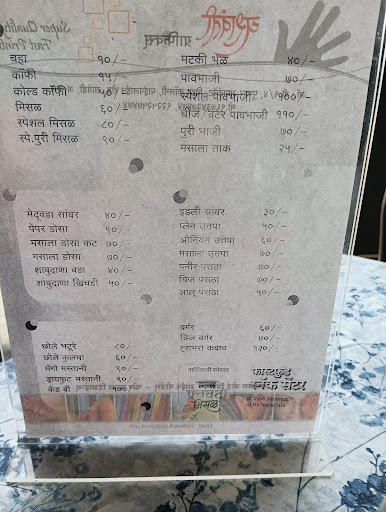 यशवंती
ग्राफिक्स
Super Quality
Fast Printing
चहा १०/-
कॉफी १५/-
कोल्ड कॉफी ५०/-
मिसळ ६०/-
स्पेशल मिसळ ८०/-
स्पे.पुरी मिसळ ९०/-
मटकी भेळ ४०/-
पावभाजी ७०/-
स्पेशल पावभाजी १००/-
चीज/बटर पावभाजी ११०/-
पुरी भाजी ७०/-
मसाला ताक २५/-
मेदुवडा सांबर ४०/-
पेपर डोसा ९०/-
मसाला डोसा कट ७०/-
मसाला डोसा ७०/-
शाबुदाणा वडा ४०/-
शाबुदाणा खिचडी ५०/-
इडली सांबर ३०/-
प्लेन उत्तपा ५०/-
ओनियन उत्तपा ६०/-
मसाला उत्तपा ७०/-
पनीर पराठा ७०/-
चिज पराठा ७०/-
आलू पराठा ५०/-
छोले भटूरे ८०/-
छोले कुलचा ६०/-
मँगो मस्तानी ९०/-
ड्रायफुट मस्तानी ९०/-
कँड बी
बर्गर ६०/-
चिज बर्गर ७०/-
हराभरा कबाब १२०/-
फास्टफुड
स्नॅक सेंटर
मिसळ